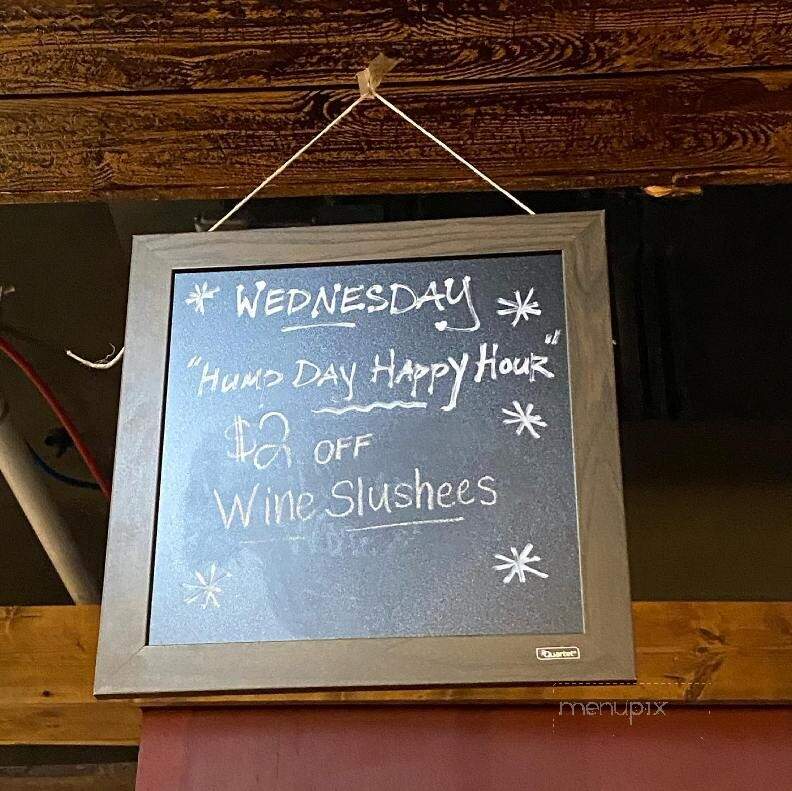 * WEDNESDAY *
"HUMP DAY HAPPY HOUR"
$2 OFF
Wine Slushees
Quartet
menupix